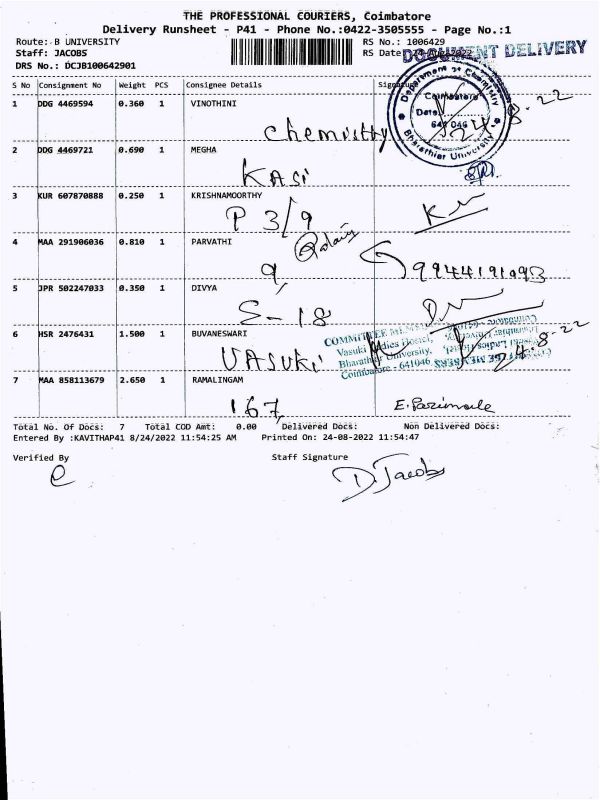 THE PROFESSIONAL COURIERS, Coimbatore
Delivery Runsheet - P41 - Phone No.:0422-3505555 - Page No.:1
Route: B UNIVERSITY RS No.: 1006429
Staff: JACOBS RS Date: 24-Aug-2022
DOCUMENT DELIVERY
DRS No.: DCJB100642901
S No Consignment No Weight PCS Consignee Details Signature
1 DDG 4469594 0.360 1 VINOTHINI
chemistry
Department of Chemistry
Coimbatore
Date
641 046
Bharathiar University
24-8-22
2 DDG 4469721 0.690 1 MEGHA
KASi
3 KUR 607870888 0.250 1 KRISHNAMOORTHY
P 3/9
4 MAA 291906036 0.810 1 PARVATHI
9
5 JPR 502247033 0.350 1 DIVYA
S-18
6 HSR 2476431 1.500 1 BUVANESWARI
VASUKi
Vasuki Ladies Hostel,
Bharathiar University,
Coimbatore - 641046
24-8-22
7 MAA 858113679 2.650 1 RAMALINGAM
167
Total No. Of Docs: 7 Total COD Amt: 0.00 Delivered Docs: Non Delivered Docs:
Entered By :KAVITHAP41 8/24/2022 11:54:25 AM Printed On: 24-08-2022 11:54:47
Verified By Staff Signature
D. Jacobs